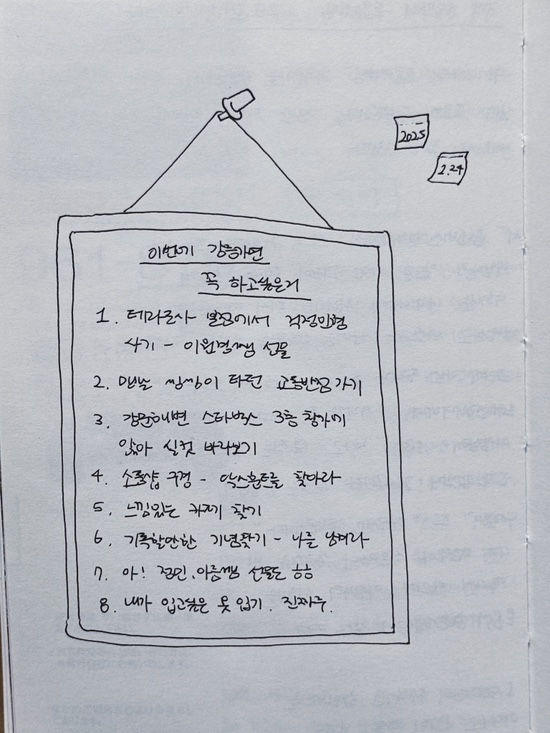 2025
2.24
이번에 강릉가면
꼭 하고싶은거
1. 테라로사 본점에서 걱정인형
사기 - 이원경쌤 선물
2. 맨날 쌍쌍이 타던 교동반점 가기
3. 강문해변 스타벅스 3층 창가에
앉아 실컷 바라보기
4. 소품샵 구경 - 익스를 찾아라
5. 느낌있는 카페 찾기
6. 기록할만한 기념찾기 - 나를 남겨라
7. 아! 정민, 아름쌤 선물도 ㅎㅎ
8. 내가 입고싶은 옷 입기. 진짜루.